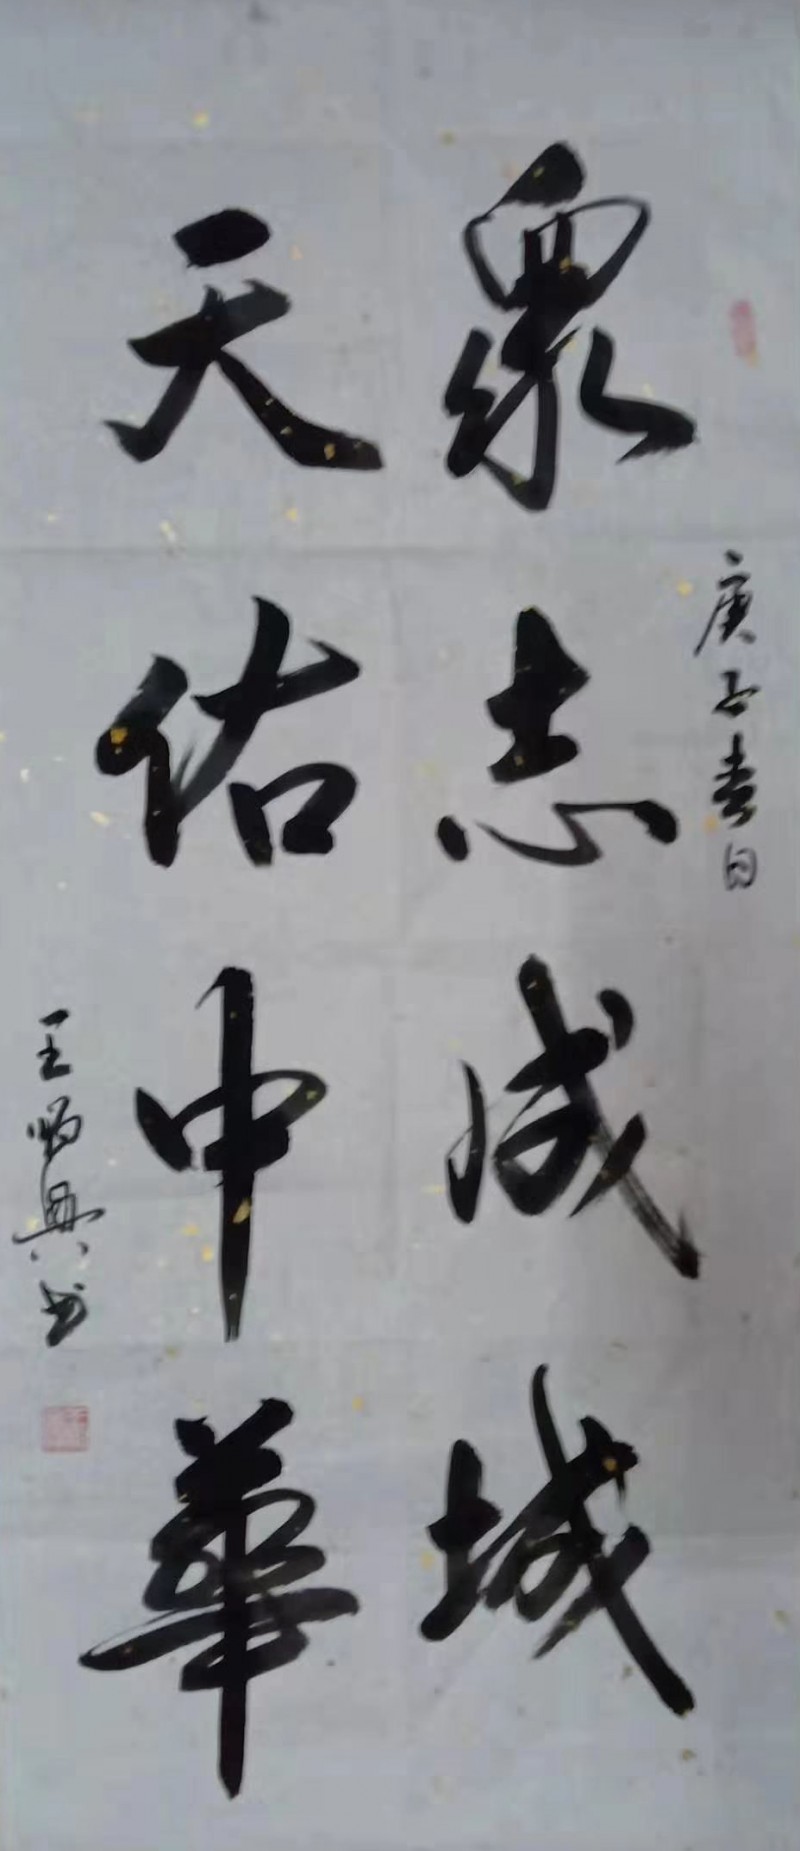 庚子春日
眾志成城
天佑中華
王
興书